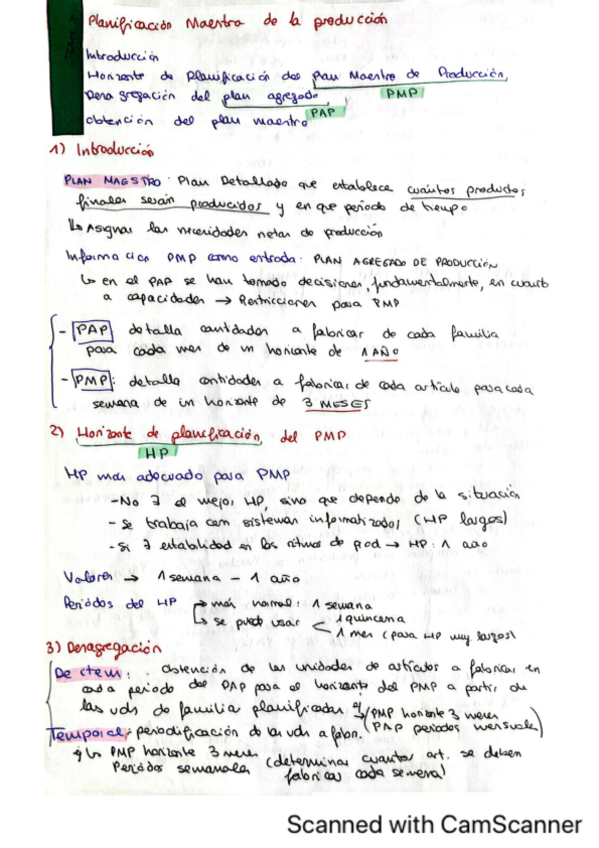 Planificación Maestra de la producción
Introducción
Horizonte de Planificación del Plan Maestro de Producción
PMP
Desagregación del plan agregado
PAP
obtención del plan maestro
1) Introducción
PLAN MAESTRO: Plan Detallado que establece cuántos productos
finales serán producidos y en que periodo de tiempo
↳ Asignar las necesidades netas de producción
Información PMP como entrada: PLAN AGREGADO DE PRODUCCIÓN
↳ en el PAP se han tomado decisiones, fundamentalmente, en cuanto
a capacidades → Restricciones para PMP
- PAP detalla cantidades a fabricar de cada familia
para cada mes de un horizonte de 1 AÑO
- PMP: detalla cantidades a fabricar de cada artículo para cada
semana de un horizonte de 3 MESES
2) Horizonte de planificación del PMP
HP
HP más adecuado para PMP
- No ∃ el mejor HP, sino que depende de la situación
- se trabaja con sistemas informatizados (HP largos)
- Si ∃ estabilidad en los ritmos de prod → HP: 1 año
Valores → 1 semana - 1 año
Periodos del HP → más normal: 1 semana
↳ se puede usar < 1 quincena
1 mes (para HP muy largos)
3) Desagregación
De item: obtención de las unidades de artículos a fabricar en
cada periodo del PAP para el horizonte del PMP a partir de
las uds de familia planificadas (PMP horizonte 3 meses
PAP periodos mensuales)
Temporal: periodificación de las uds a fabri.
↳ PMP horizonte 3 meses (determinar cuantos art. se deben
Periodos semanales fabricar cada semana)
Scanned with CamScanner